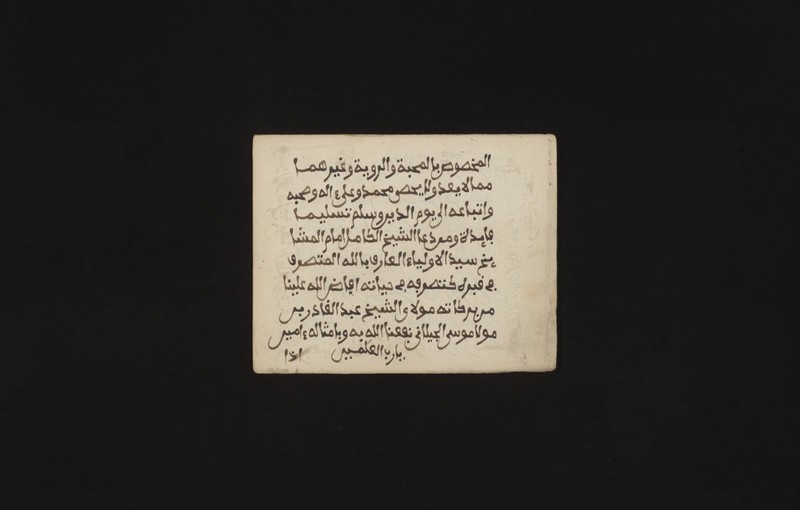 المخصوص بالمحبة والروية وغيرهما
مما لا يعد ولا يحصى محمد وعلى ءاله وصحبه
واتباعه الى يوم الدين وسلم تسليما
فايدة ومن دعا الشيخ الكامل امام المشا
يخ سيد الاولياء العارف بالله المتصرف
في قبره كتصرفه في حياته افاض الله علينا
من بركاته مولاي الشيخ عبد القادر بن
مولا موسى الجيلاني نفعنا الله به وبامثاله ءامين
يا رب العلمين